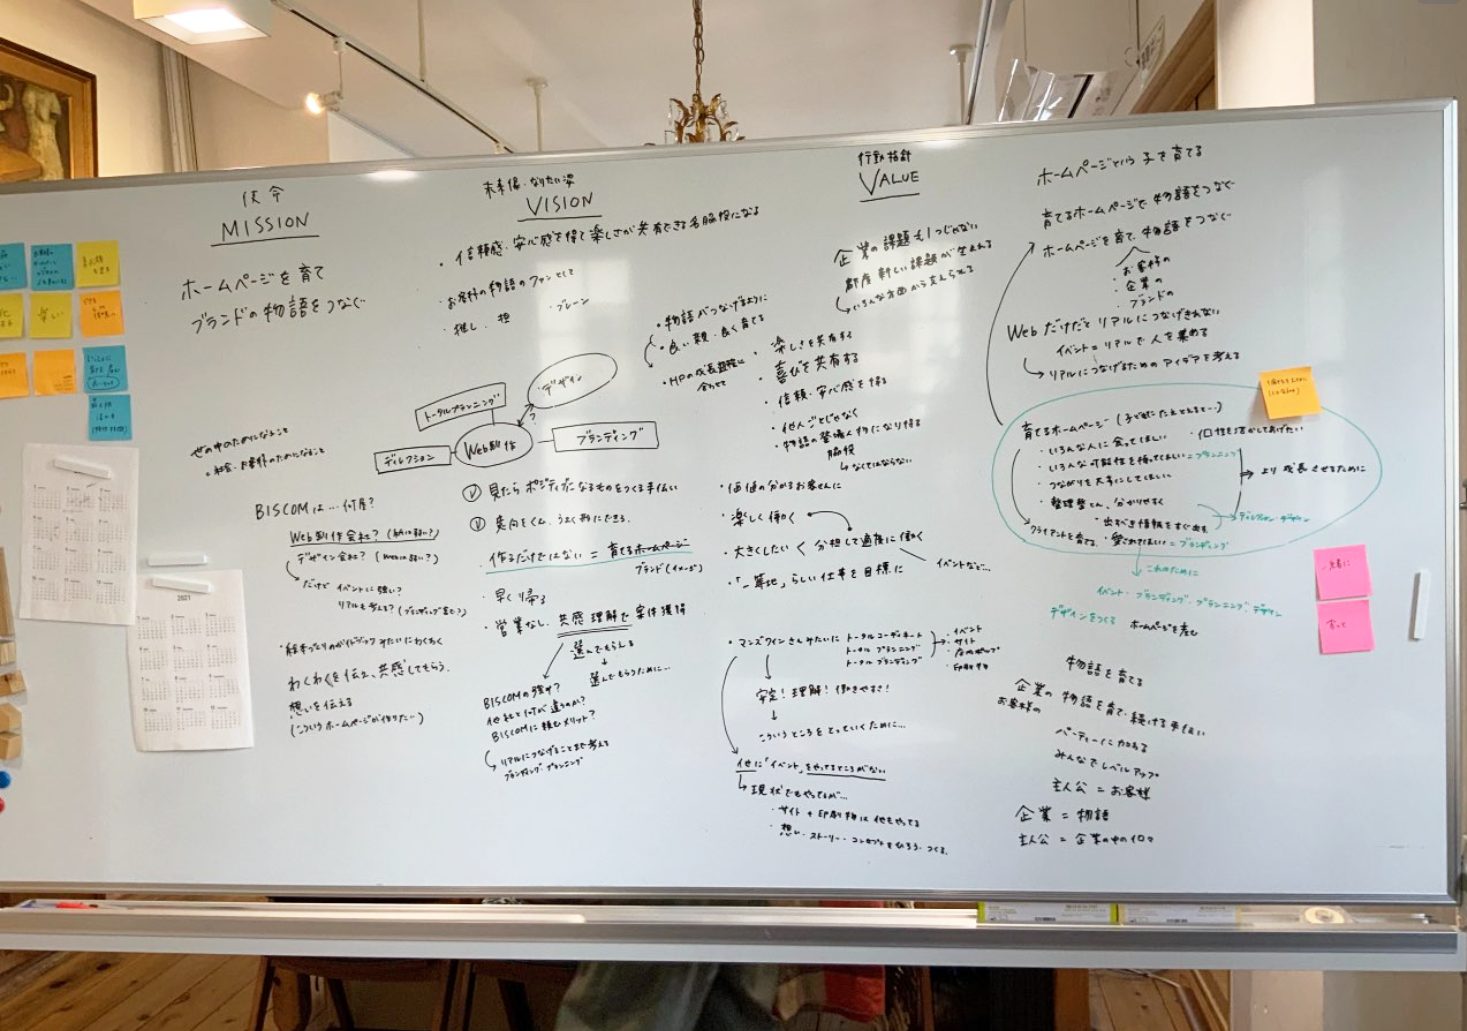 使命
MISSION
ホームページを育て
ブランドの物語をつなぐ
世の中のためになること
社会・お客様のためになること
BISCOMは…何屋?
Web制作会社? (紙は弱い?)
デザイン会社? (Webは弱い?)
だけど イベントに強い?
リアルも考える?
みたいにわくわく
わくわくを伝え、共感してもらう。
想いを伝える
(こういうホームページが作りたい)
未来像・なりたい姿
VISION
・信頼感・安心感を得て楽しさが共有できる名脇役になる
・お客様の物語のファンとして
・推し・担 ・ブレーン
デザイン
トータルプランニング
?
Web制作
ディレクション
ブランディング
見たらポジティブになるものをつくる手伝い
意向をくみ、うまく形にできる。
・作るだけではない = 育てるホームページ
ブランド(イメージ)
・早く帰る
・営業なし、共感・理解で案件獲得
選んでもらえる
選んでもらうために…
BISCOMの強み?
他社と何が違うのか?
BISCOMに頼むメリット?
リアルにつなげることまで考える
ブランディング・プランニング
・物語がつなげるように
・良い親・良く育てる
・HPの成長過程に
合わせて
行動指針
VALUE
企業の課題も1つじゃない
都度新しい課題が生まれる
いろんな方面から支えられる
・楽しさを共有する
・喜びを共有する
・信頼・安心感を得る
・他人ごとじゃなく
・物語の登場人物になり得る
脇役
なくてはならない
・価値の分かるお客さんに
・楽しく働く
・大きくしたい < 分担して適度に働く
イベントなど…
・「一等地」らしい仕事を目標に
・マンズワインさんみたいに
トータルコーディネート
トータルプランニング
トータルブランディング
・イベント
・サイト
・印刷物
安定! 理解! 働きやすさ!
こういうところをとっていくために…
他に「イベント」をやってるところがない
現状でもやってるが…
・サイト + 印刷物は他もやってる
・想い・ストーリー・コンセプトをひろう・つくる。
ホームページという子を育てる
育てるホームページで物語をつなぐ
ホームページを育て、物語をつなぐ
・お客様の
・企業の
・ブランドの
Webだけだとリアルにつなげきれない
イベント=リアルで人を集める
リアルにつなげるためのアイデアを考える
育てるホームページ (子どもにたとえると…)
・いろんな人に会ってほしい ・個性を活かしてあげたい
・いろんな可能性を持ってほしい = プランニング
・つながりを大事にしてほしい
・整理整とん、分かりやすく
・出すべき情報をすぐ出す
ディレクション・デザイン
・愛されてほしい = ブランディング
クライアントを育てる
より成長させるために
これのために
イベント・ブランディング・プランニング・デザイン
デザインをつくる ホームページを産む
物語を育てる
企業の
お客様の
物語を育て、続ける手伝い
パーティーに加わる
みんなでレベルアップ
主人公 = お客様
企業 = 物語
主人公 = 企業の中の個々
一緒に
育って
2021